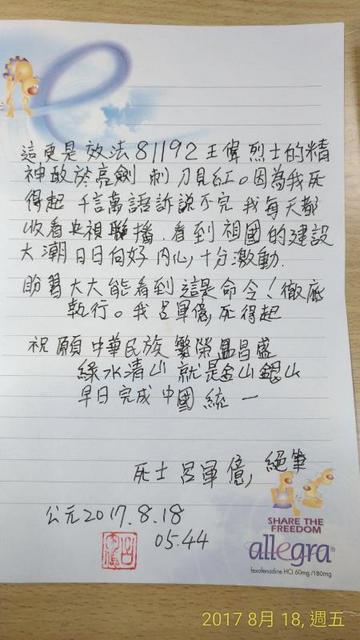 這更是效法81192王偉烈士的精
神敢於亮劍 刺刀見紅。因為我死
得起 千言萬語訴說不完 我每天都
收看央視聯播.看到祖國的建設
大潮日日向好 內心十分激動.
盼習大大能看到這是命令！徹底
執行。我呂軍億死得起
祝願中華民族繁榮昌盛
綠水清山 就是金山銀山
早日完成中國統一
死士呂軍億, 絕筆
公元2017.8.18
05.44
SHARE THE
FREEDOM
allegra
fexofenadine HCl 60mg/180mg
2017 8月 18, 週五